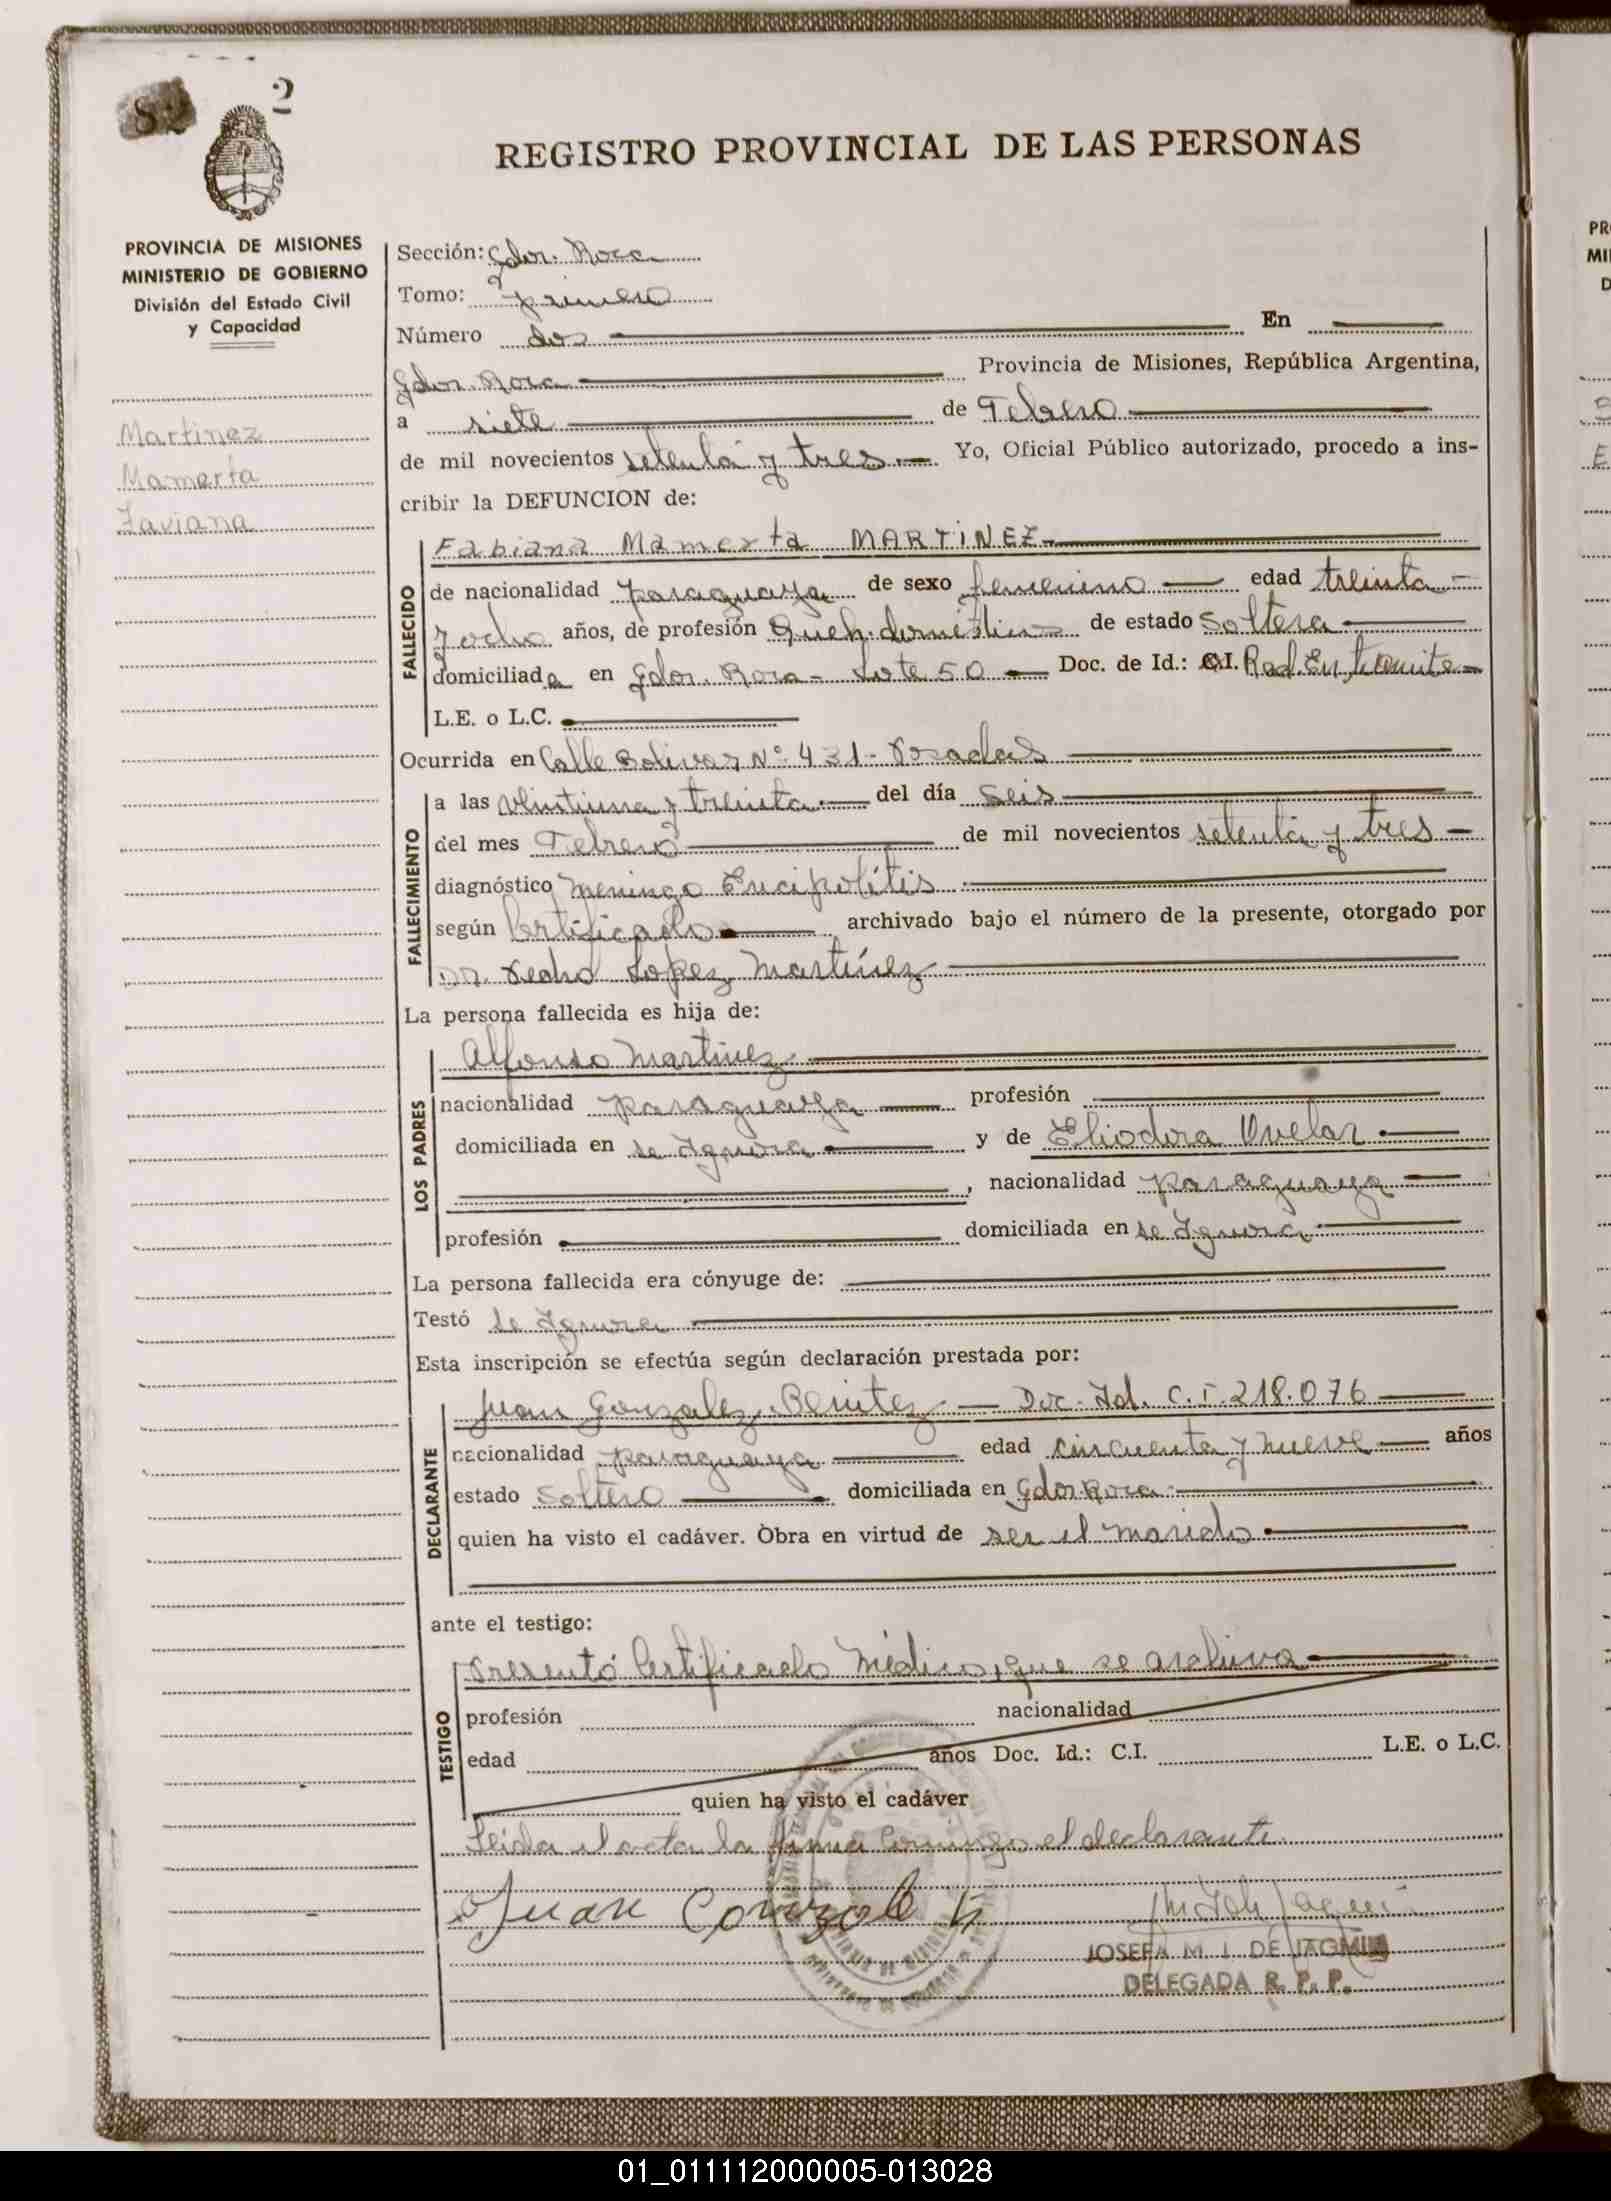 2
REGISTRO PROVINCIAL DE LAS PERSONAS
PROVINCIA DE MISIONES
MINISTERIO DE GOBIERNO
División del Estado Civil
y Capacidad
Martinez
Mamerta
Faviana
Sección: Gdor. Roca
Tomo: primero
Número dos En
Gdor. Roca Provincia de Misiones, República Argentina,
a siete de Febrero
de mil novecientos setenta y tres Yo, Oficial Público autorizado, procedo a ins-
cribir la DEFUNCION de:
Fabiana Mamerta MARTINEZ
FALLECIDO
de nacionalidad paraguaya de sexo femenino edad treinta
y ocho años, de profesión Queh. domésticos de estado Soltera
domiciliada en Gdor. Roca - Lote 50 Doc. de Id.: C.I. Rad. En tramite
L.E. o L.C.
Ocurrida en Calle Bolivar Nº 431 - Posadas
FALLECIMIENTO
a las veintiuna y treinta del día seis
del mes Febrero de mil novecientos setenta y tres
diagnóstico Meningo
según Certificado archivado bajo el número de la presente, otorgado por
Dr. Pedro Lopez Martínez
La persona fallecida es hija de:
LOS PADRES
Alfonso Martinez
nacionalidad paraguaya profesión
domiciliada en se Ignora y de Eliodora Ovelar
, nacionalidad paraguaya
profesión domiciliada en se Ignora
La persona fallecida era cónyuge de:
Testó se Ignora
Esta inscripción se efectúa según declaración prestada por:
DECLARANTE
Juan Gonzalez Benitez - Doc. Id. C.I. 218.076
nacionalidad paraguaya edad cincuenta y nueve años
estado Soltero domiciliada en Gdor. Roca
quien ha visto el cadáver. Obra en virtud de ser el marido
ante el testigo:
TESTIGO
Presentó Certificado Médico, que se archiva
profesión nacionalidad
edad años Doc. Id.: C.I. L.E. o L.C.
quien ha visto el cadáver
Leida el acta la firma conmigo el declarante
Juan Gonzalez
JOSEFA M. I. DE JAGMIN
DELEGADA R. P. P.
01_011112000005-013028